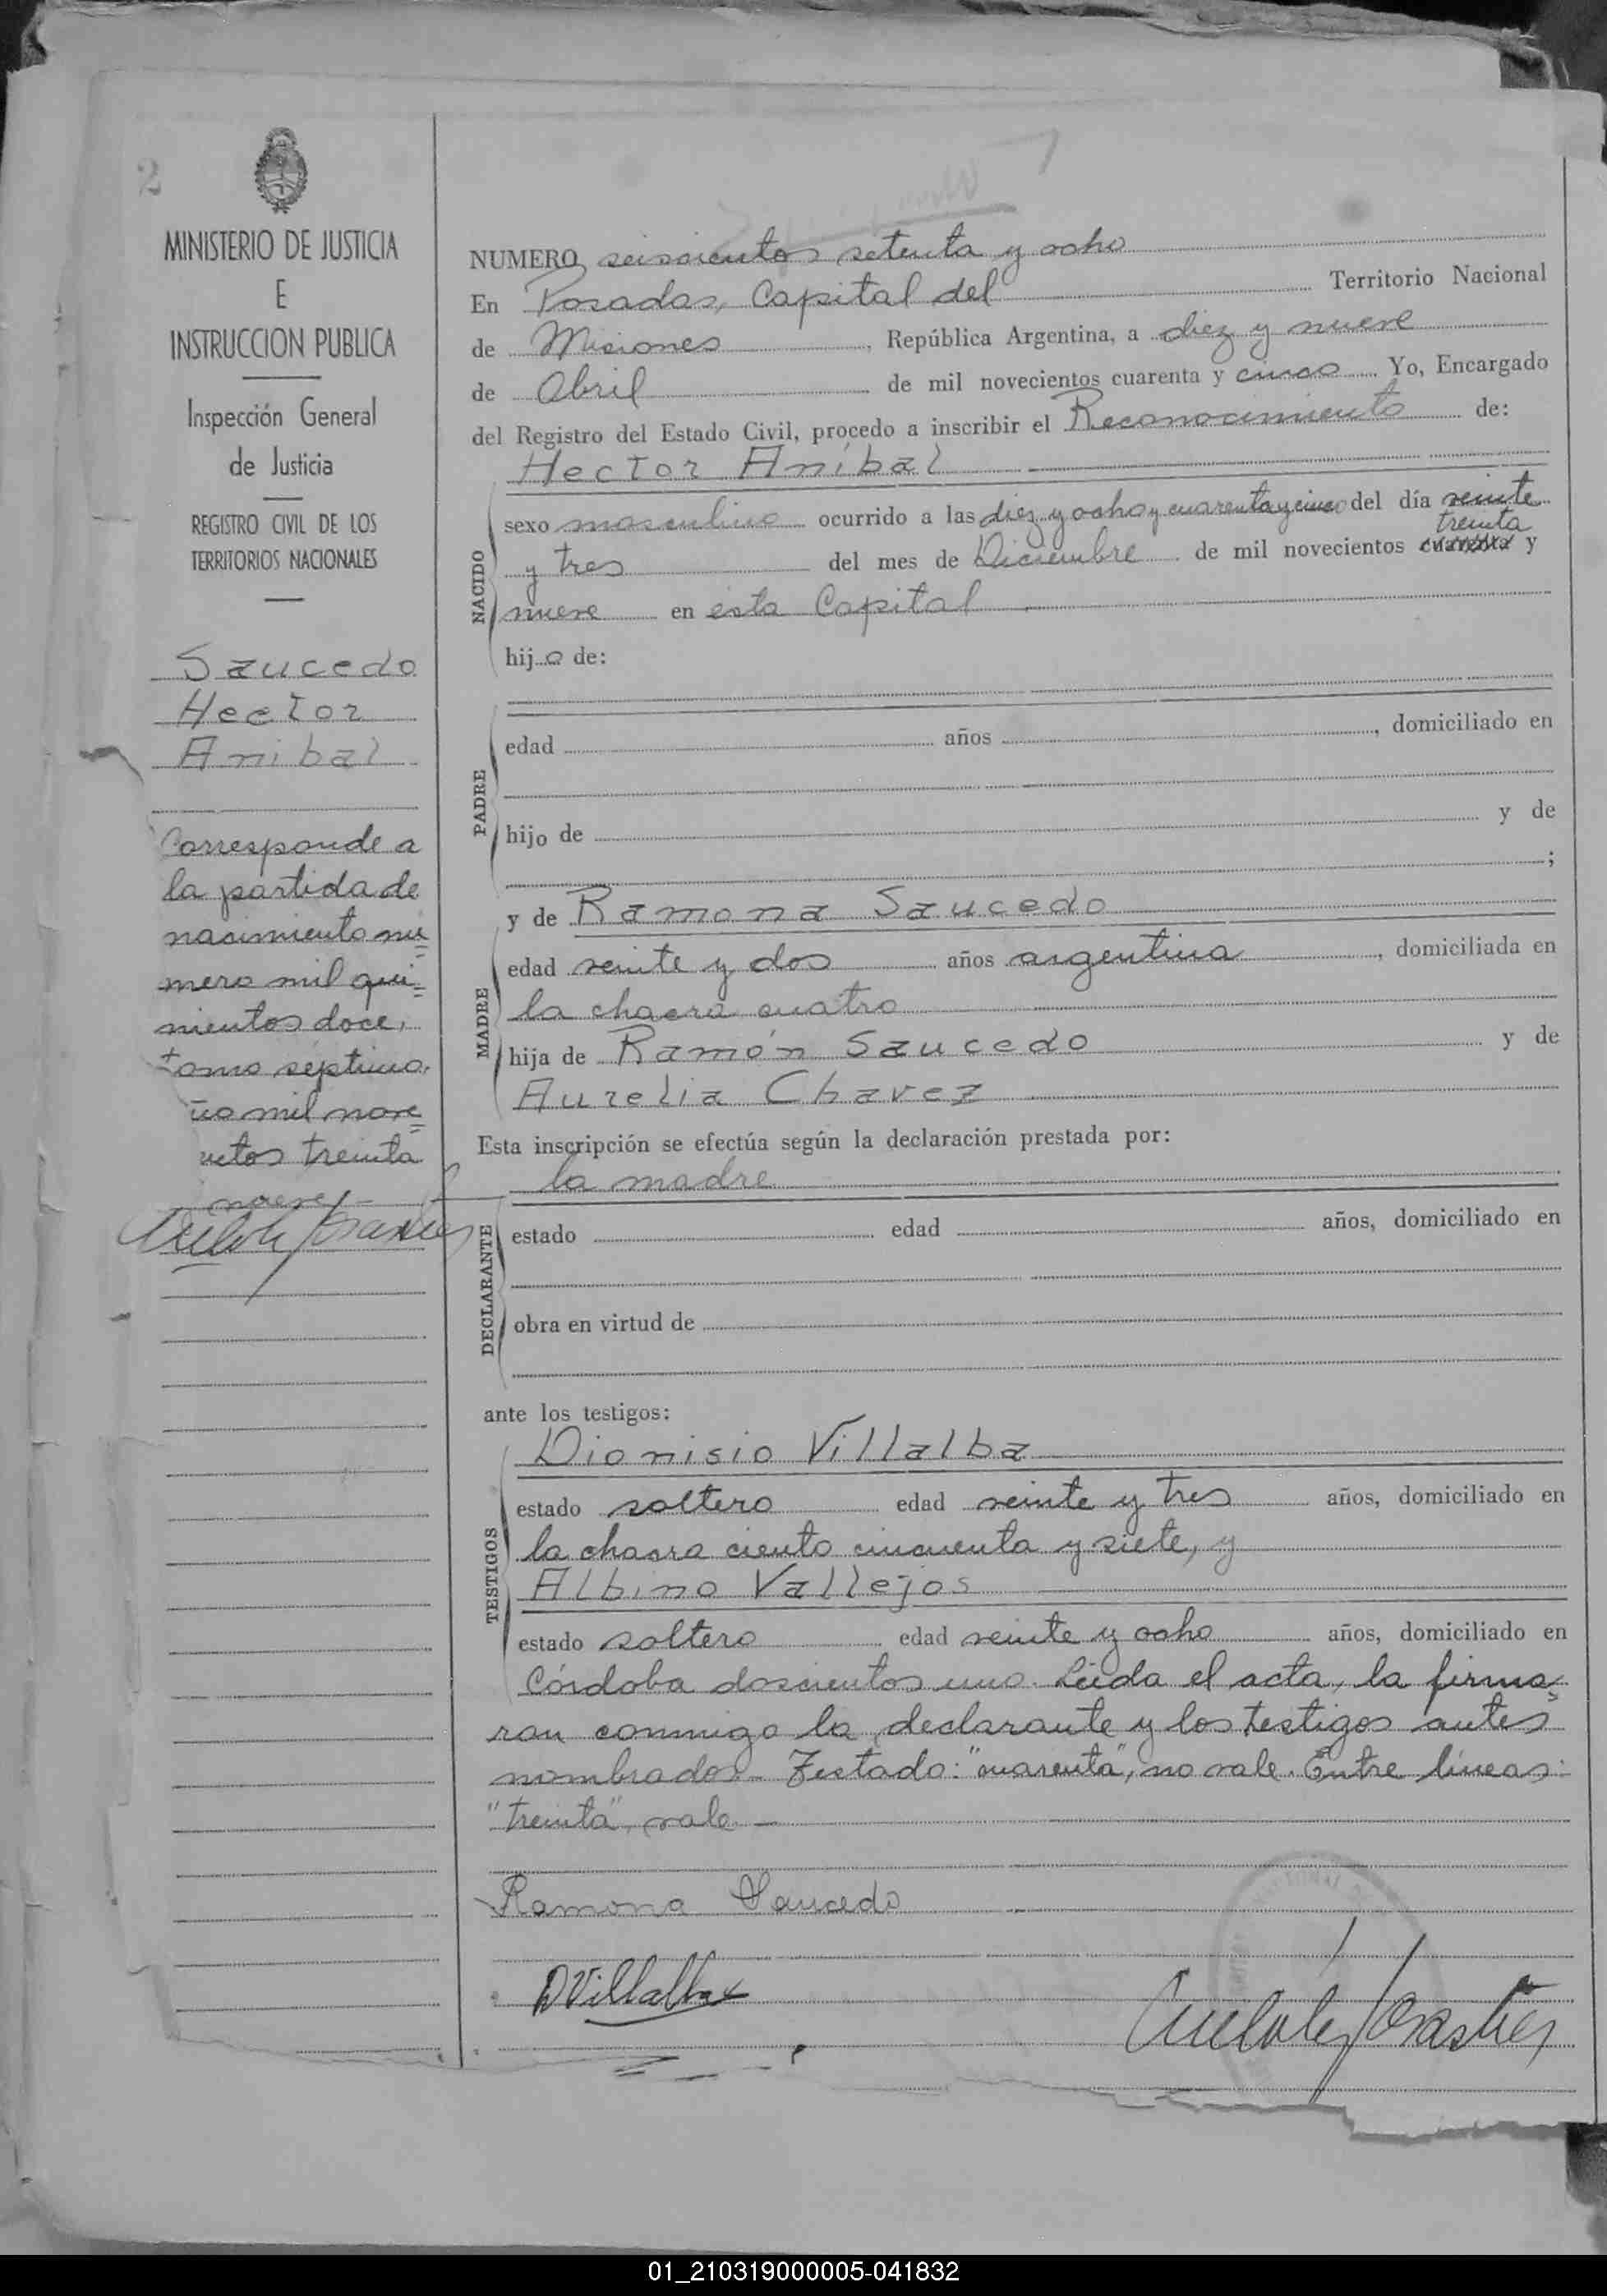 2
MINISTERIO DE JUSTICIA
E
INSTRUCCION PUBLICA
Inspección General
de Justicia
REGISTRO CIVIL DE LOS
TERRITORIOS NACIONALES
Saucedo
Hector
Anibal
Corresponde a
la partida de
nacimiento nú=
mero mil qui=
nientos doce,
tomo séptimo,
ño mil nove=
ntos treinta
nueve
NUMERO seiscientos setenta y ocho
En Posadas, Capital del Territorio Nacional
de Misiones, República Argentina, a diez y nueve
de Abril de mil novecientos cuarenta y cinco Yo, Encargado
del Registro del Estado Civil, procedo a inscribir el Reconocimiento de:
Hector Aníbal
NACIDO
sexo masculino ocurrido a las diez y ocho y cuarenta y cinco del día veinte
treinta
y tres del mes de Diciembre de mil novecientos cuarenta y
nueve en ésta Capital
hijo de:
PADRE
edad años , domiciliado en
hijo de y de
;
y de Ramona Saucedo
MADRE
edad veinte y dos años argentina, domiciliada en
la chacra cuatro
hija de Ramón Saucedo y de
Aurelia Chavez
Esta inscripción se efectúa según la declaración prestada por:
la madre
DECLARANTE
estado edad años, domiciliado en
obra en virtud de
ante los testigos:
TESTIGOS
Dionisio Villalba
estado soltero edad veinte y tres años, domiciliado en
la chacra ciento cincuenta y siete, y
Albino Vallejos
estado soltero edad veinte y ocho años, domiciliado en
Córdoba doscientos uno. Leída el acta, la firma=
ron conmigo la declarante y los testigos antes
nombrados.- Testado: "cuarenta", no vale. Entre líneas:
"treinta", vale.-
Ramona Saucedo
D Villalba
01_210319000005-041832